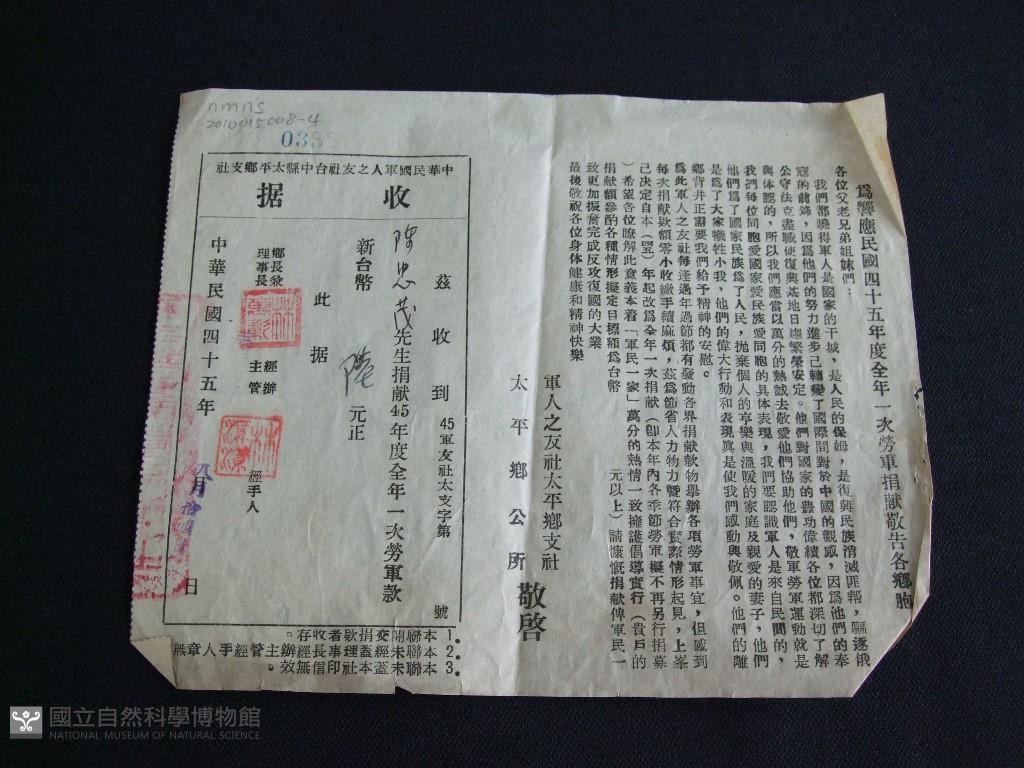 為響應民國四十五年度全年一次勞軍捐献敬告各鄉胞
各位父老兄弟姐妹們：
我們都曉得軍人是國家的干城，是人民的保姆，是復興民族消滅匪幫，驅逐俄
寇的前鋒，因為他們的努力進步已轉變了國際間對於中國的觀感，因為他們的奉
公守法克盡職使復興基地日趨繁榮安定。他們對國家的豊功偉績各位都深切了解
與体認的，所以我們應當以萬分的熱誠去敬愛他們協助他們，敬軍勞軍運動就是
我們每位同胞愛國家愛民族愛同胞的具体表現，我們要認識軍人是來自民間的，
他們為了國家民族為了人民，抛棄個人的享樂與溫暖的家庭及親愛的妻子，他們
是為了大家犧牲小我，他們的偉大行動和表現真是使我們感動與敬佩。他們的離
鄉背井正需要我們給予精神的安慰。
為此軍人之友社每逢過年過節都有發動各界捐献款物舉辦各項勞軍事宜，但感到
每次捐献欵額零小收繳手續麻煩，茲為節省人力物力暨符合實際情形起見，上峯
己決定自本（四五）年起改為全年一次捐献（卽本年內各季節勞軍擬不再另行捐募
）希望各位瞭解此意義本着「軍民一家」萬分的熱情一致擁護倡導實行（貴戶的
捐献額參酌各種情形擬定目標額為台幣 元以上）請慷慨捐献俾軍民一
致更加振奮完成反攻復國的大業
最後敬祝各位身体健康和精神快樂
軍人之友社太平鄉支社
太平鄉公所
敬啓
nmns
2010015008-4
中華民國軍人之友社台中縣太平鄉支社
收据
45軍友社太支字第 號
茲收到
陳忠茂先生捐献45年度全年一次勞軍款
新台幣 元正
此据
鄉長兼
理事長
經辦
主管
經手人
中華民國四十五年 月 日
1. 本聯開交捐欵者收存。
2. 本聯未經蓋理事長經辦主管經手人章無
3. 本聯未蓋本社印信無效。
國立自然科學博物館
NATIONAL MUSEUM OF NATURAL SCIENCE